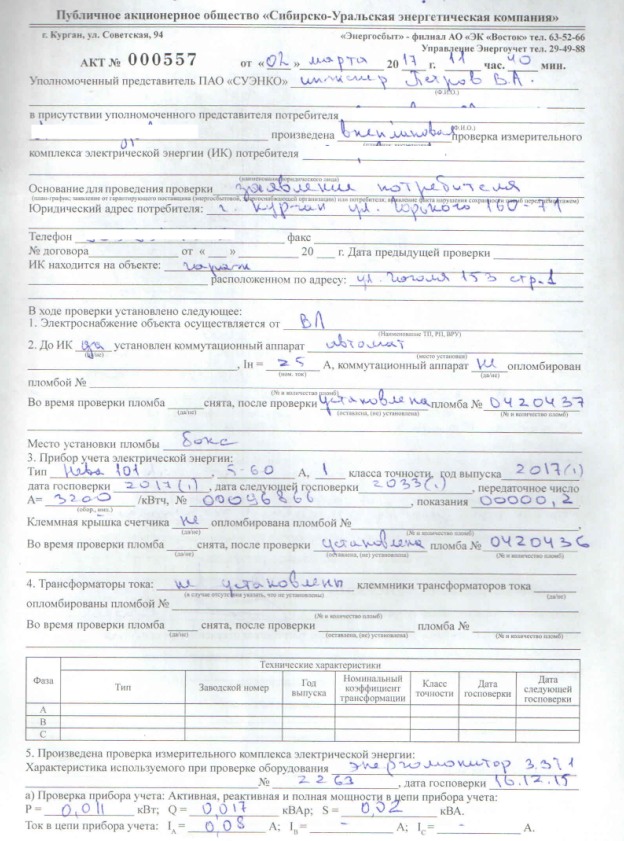 Публичное акционерное общество «Сибирско-Уральская энергетическая компания»
г. Курган, ул. Советская, 94 «Энергосбыт» - филиал АО «ЭК «Восток» тел. 63-52-66
Управление Энергоучет тел. 29-49-88
АКТ № 000557 от «02» марта 2017 г. 11 час. 40 мин.
Уполномоченный представитель ПАО «СУЭНКО» инженер Петров В.А.
(Ф.И.О.)
в присутствии уполномоченного представителя потребителя
(Ф.И.О.)
произведена внеплановая проверка измерительного
комплекса электрической энергии (ИК) потребителя
(наименование юридического лица)
Основание для проведения проверки заявление потребителя
Юридический адрес потребителя: г. Курган ул. Горького 160-71
Телефон факс
№ договора от « » 20 г. Дата предыдущей проверки
ИК находится на объекте: гараж
расположенном по адресу: ул. Гоголя 153 стр.1
В ходе проверки установлено следующее:
1. Электроснабжение объекта осуществляется от ВЛ
(Наименование ТП, РП, ВРУ)
2. До ИК да установлен коммутационный аппарат автомат
(да/не) (место установки)
, Iн = 25 А, коммутационный аппарат не опломбирован
(ном. ток) (да/не)
пломбой №
(№ и количество пломб)
Во время проверки пломба снята, после проверки установлена пломба № 0420437
(да/не) (оставлена, (не) установлена) (№ и количество пломб)
Место установки пломбы бокс
3. Прибор учета электрической энергии:
Тип Нева 101, 5-60 А, 1 класса точности, год выпуска 2017(1)
дата госповерки 2017(1), дата следующей госповерки 2033(1), передаточное число
А= 3200 /кВтч, № 00096866, показания 00000,2
(обор., имп.)
Клеммная крышка счетчика не опломбирована пломбой №
(да/не) (№ и количество пломб)
Во время проверки пломба снята, после проверки установлена пломба № 0420436
(да/не) (оставлена, (не) установлена) (№ и количество пломб)
4. Трансформаторы тока: не установлены клеммники трансформаторов тока
(в случае отсутствия указать, что не установлены) (да/не)
опломбированы пломбой №
(№ и количество пломб)
Во время проверки пломба снята, после проверки пломба №
(да/не) (оставлена, (не) установлена) (№ и количество пломб)
Технические характеристики
Фаза Тип Заводской номер Год выпуска Номинальный коэффициент трансформации Класс точности Дата госповерки Дата следующей госповерки
А
В
С
5. Произведена проверка измерительного комплекса электрической энергии:
Характеристика используемого при проверке оборудования Энергомонитор 3.3Т1
№ 2263, дата госповерки 16.12.15
а) Проверка прибора учета: Активная, реактивная и полная мощности в цепи прибора учета:
P = 0,011 кВт; Q = 0,017 кВАр; S = 0,02 кВА.
Ток в цепи прибора учета: IA = 0,08 А; IB= - А; IC= - А.